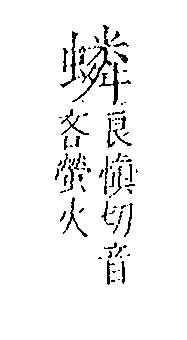 蟒
良慎切音
吝螢火